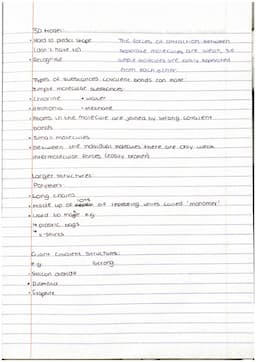 3D Model:
• Hard to predict shape
(don't have to)
• Recognise
The forces of attraction between
separate molecules are weak, so
simple molecules are easily separated
from each other.
Types of substances covalent bonds can make:
Simple molecular substances
• Chlorine • water
• Ammonia • methane
• Atoms in the molecule are joined by strong covalent
bonds
• Small molecules
• Between the individual molecules there are only weak
intermolecular forces (easily broken)
Larger structures
Polymers:
• Long chains
• Made up of lots of repeating units called 'monomer'
• Used to make e.g
→ plastic bags
→ t-shirts
Giant Covalent Structures:
e.g strong
• Silicon dioxide
• Diamond
• Graphite